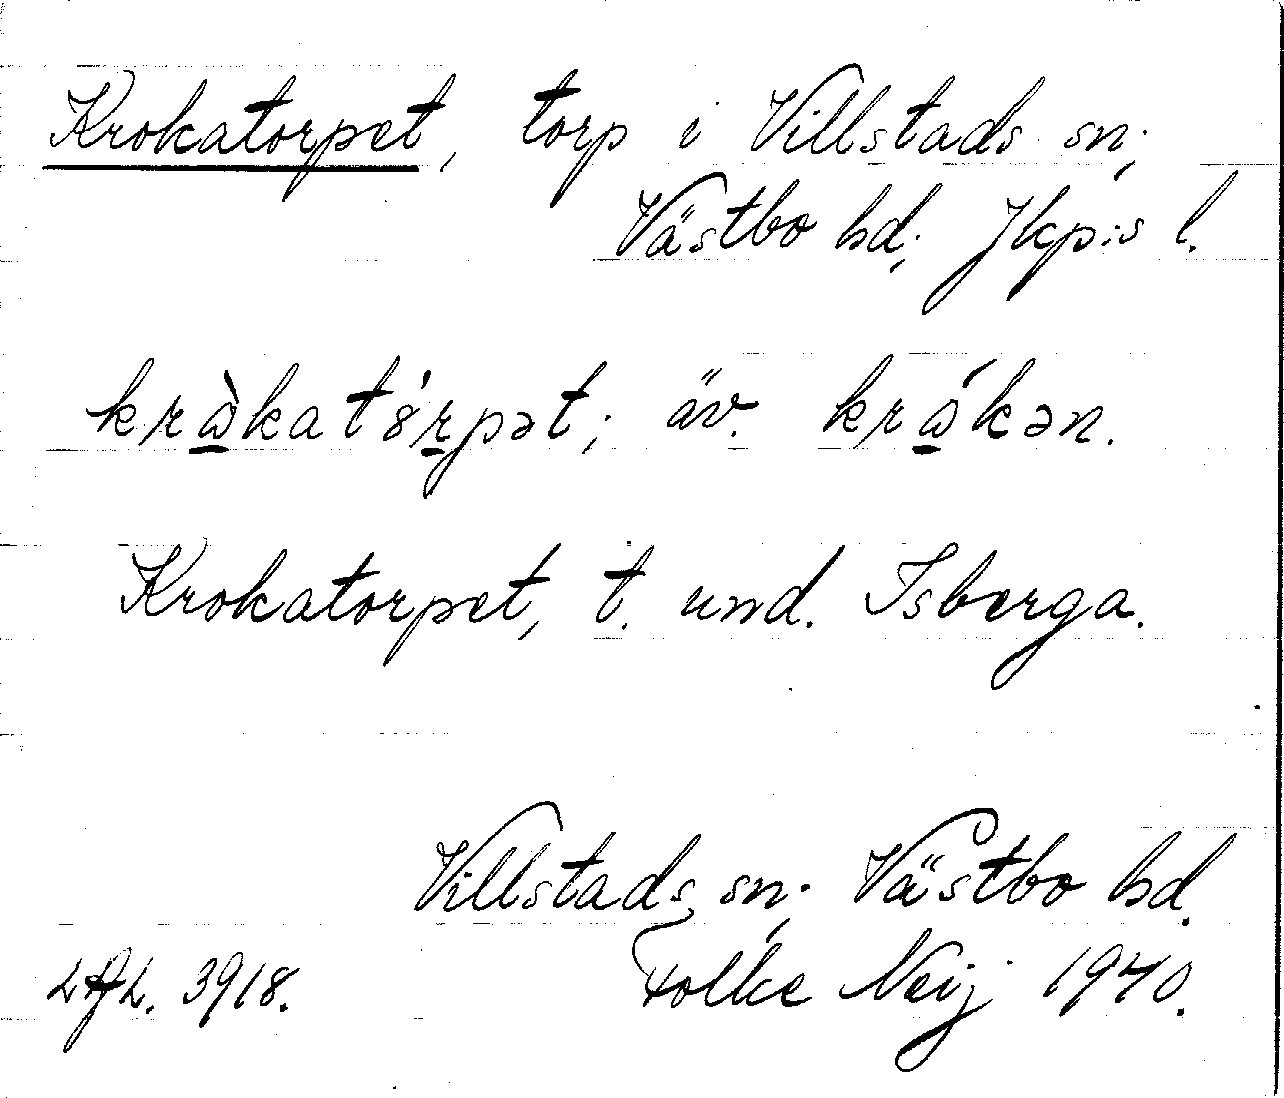 Krokatorpet, torp i Villstads sn;
Västbo hd; Jkp:s l.
krὼkatȣ́rpət; äv. krώkən.
Krokatorpet, t. und. Isberga.
Villstads sn; Västbo hd.
3918. Folke Neij 1940.